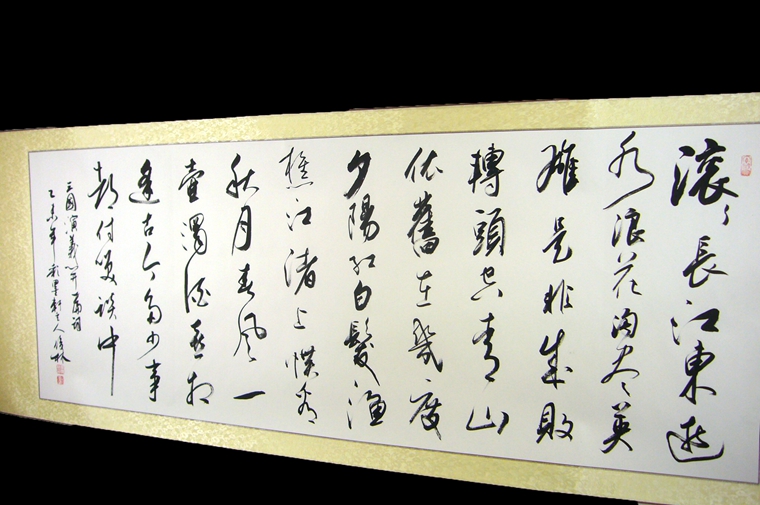 滚々長江東逝
水浪花淘尽英
雄是非成敗
轉頭空青山
依舊在幾度
夕陽红白髮渔
樵江渚上惯看
秋月春風一
壺濁酒喜相
逢古今多少事
都付笑談中
三國演義開篇词
乙未年 墨轩主人俊林